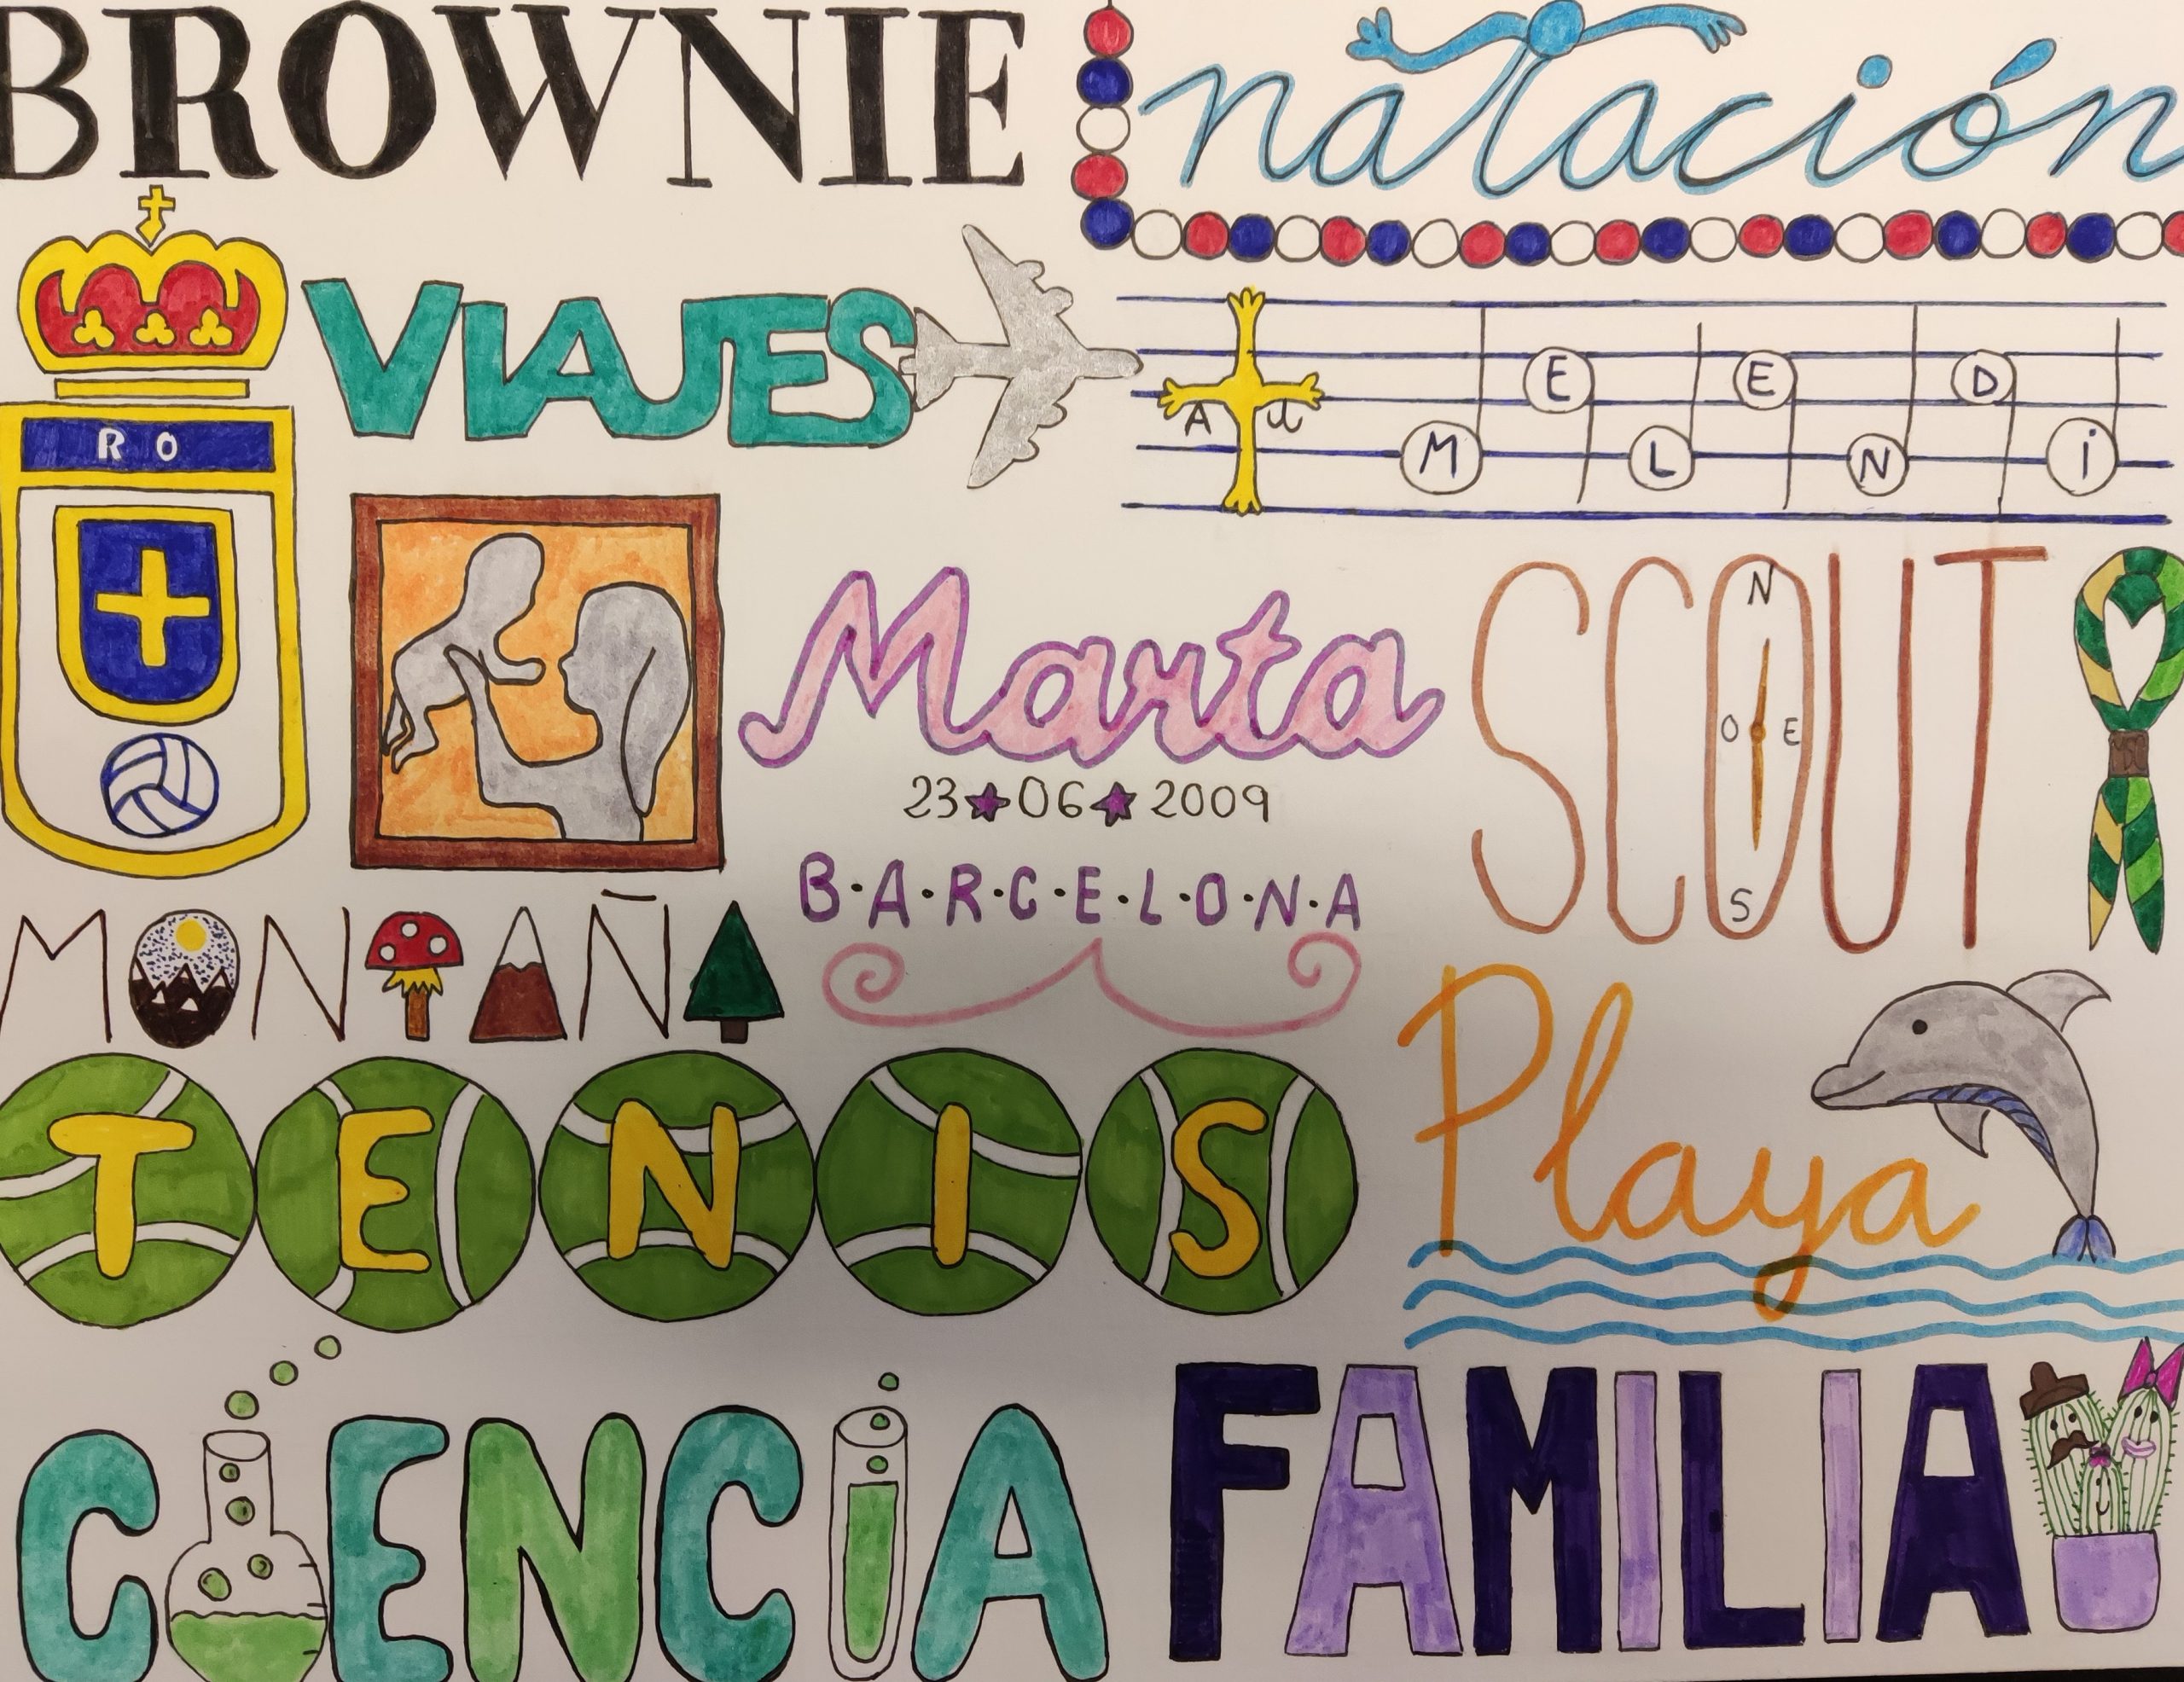 BROWNIE
natación
VIAJES
A d
M E L E N D i
R O
Marta
23 06 2009
B·A·R·C·E·L·O·N·A
SCOUT
N
O E
S
MONTAÑA
Playa
TENIS
CIENCIA
FAMILIA